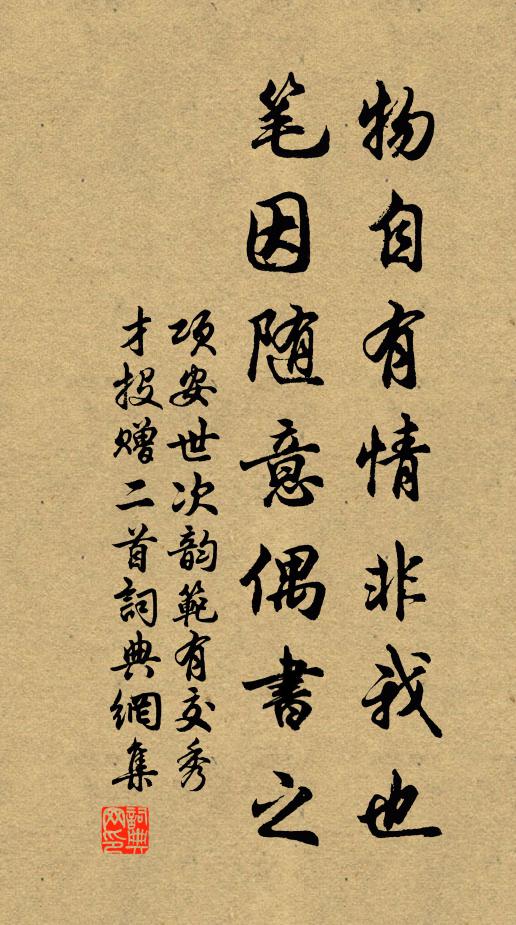 物自有情非我也
笔因随意偶書之
项安世次韵範有交秀
才投赠二首詞典網集
詞典网印